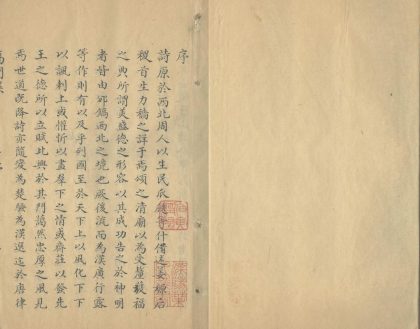 序
詩原於西北周人以生民瓜瓞等什備述姜嫄后
稷首生力穡之詳于焉頌之清廟以為受釐馥福
之典所謂美盛德之形容以其成功告之於神明
者皆由邠鎬西北之境也厥後流而為漢廣行露
等作則有以及乎列國至於天下上以風化下下
以諷刺上或惟折以盡羣下之情或齋莊以發先
王之德所以立賦比興於其門藹然忠厚之風見
焉世道既降詩亦隨變為楚騷為漢選迄於唐律